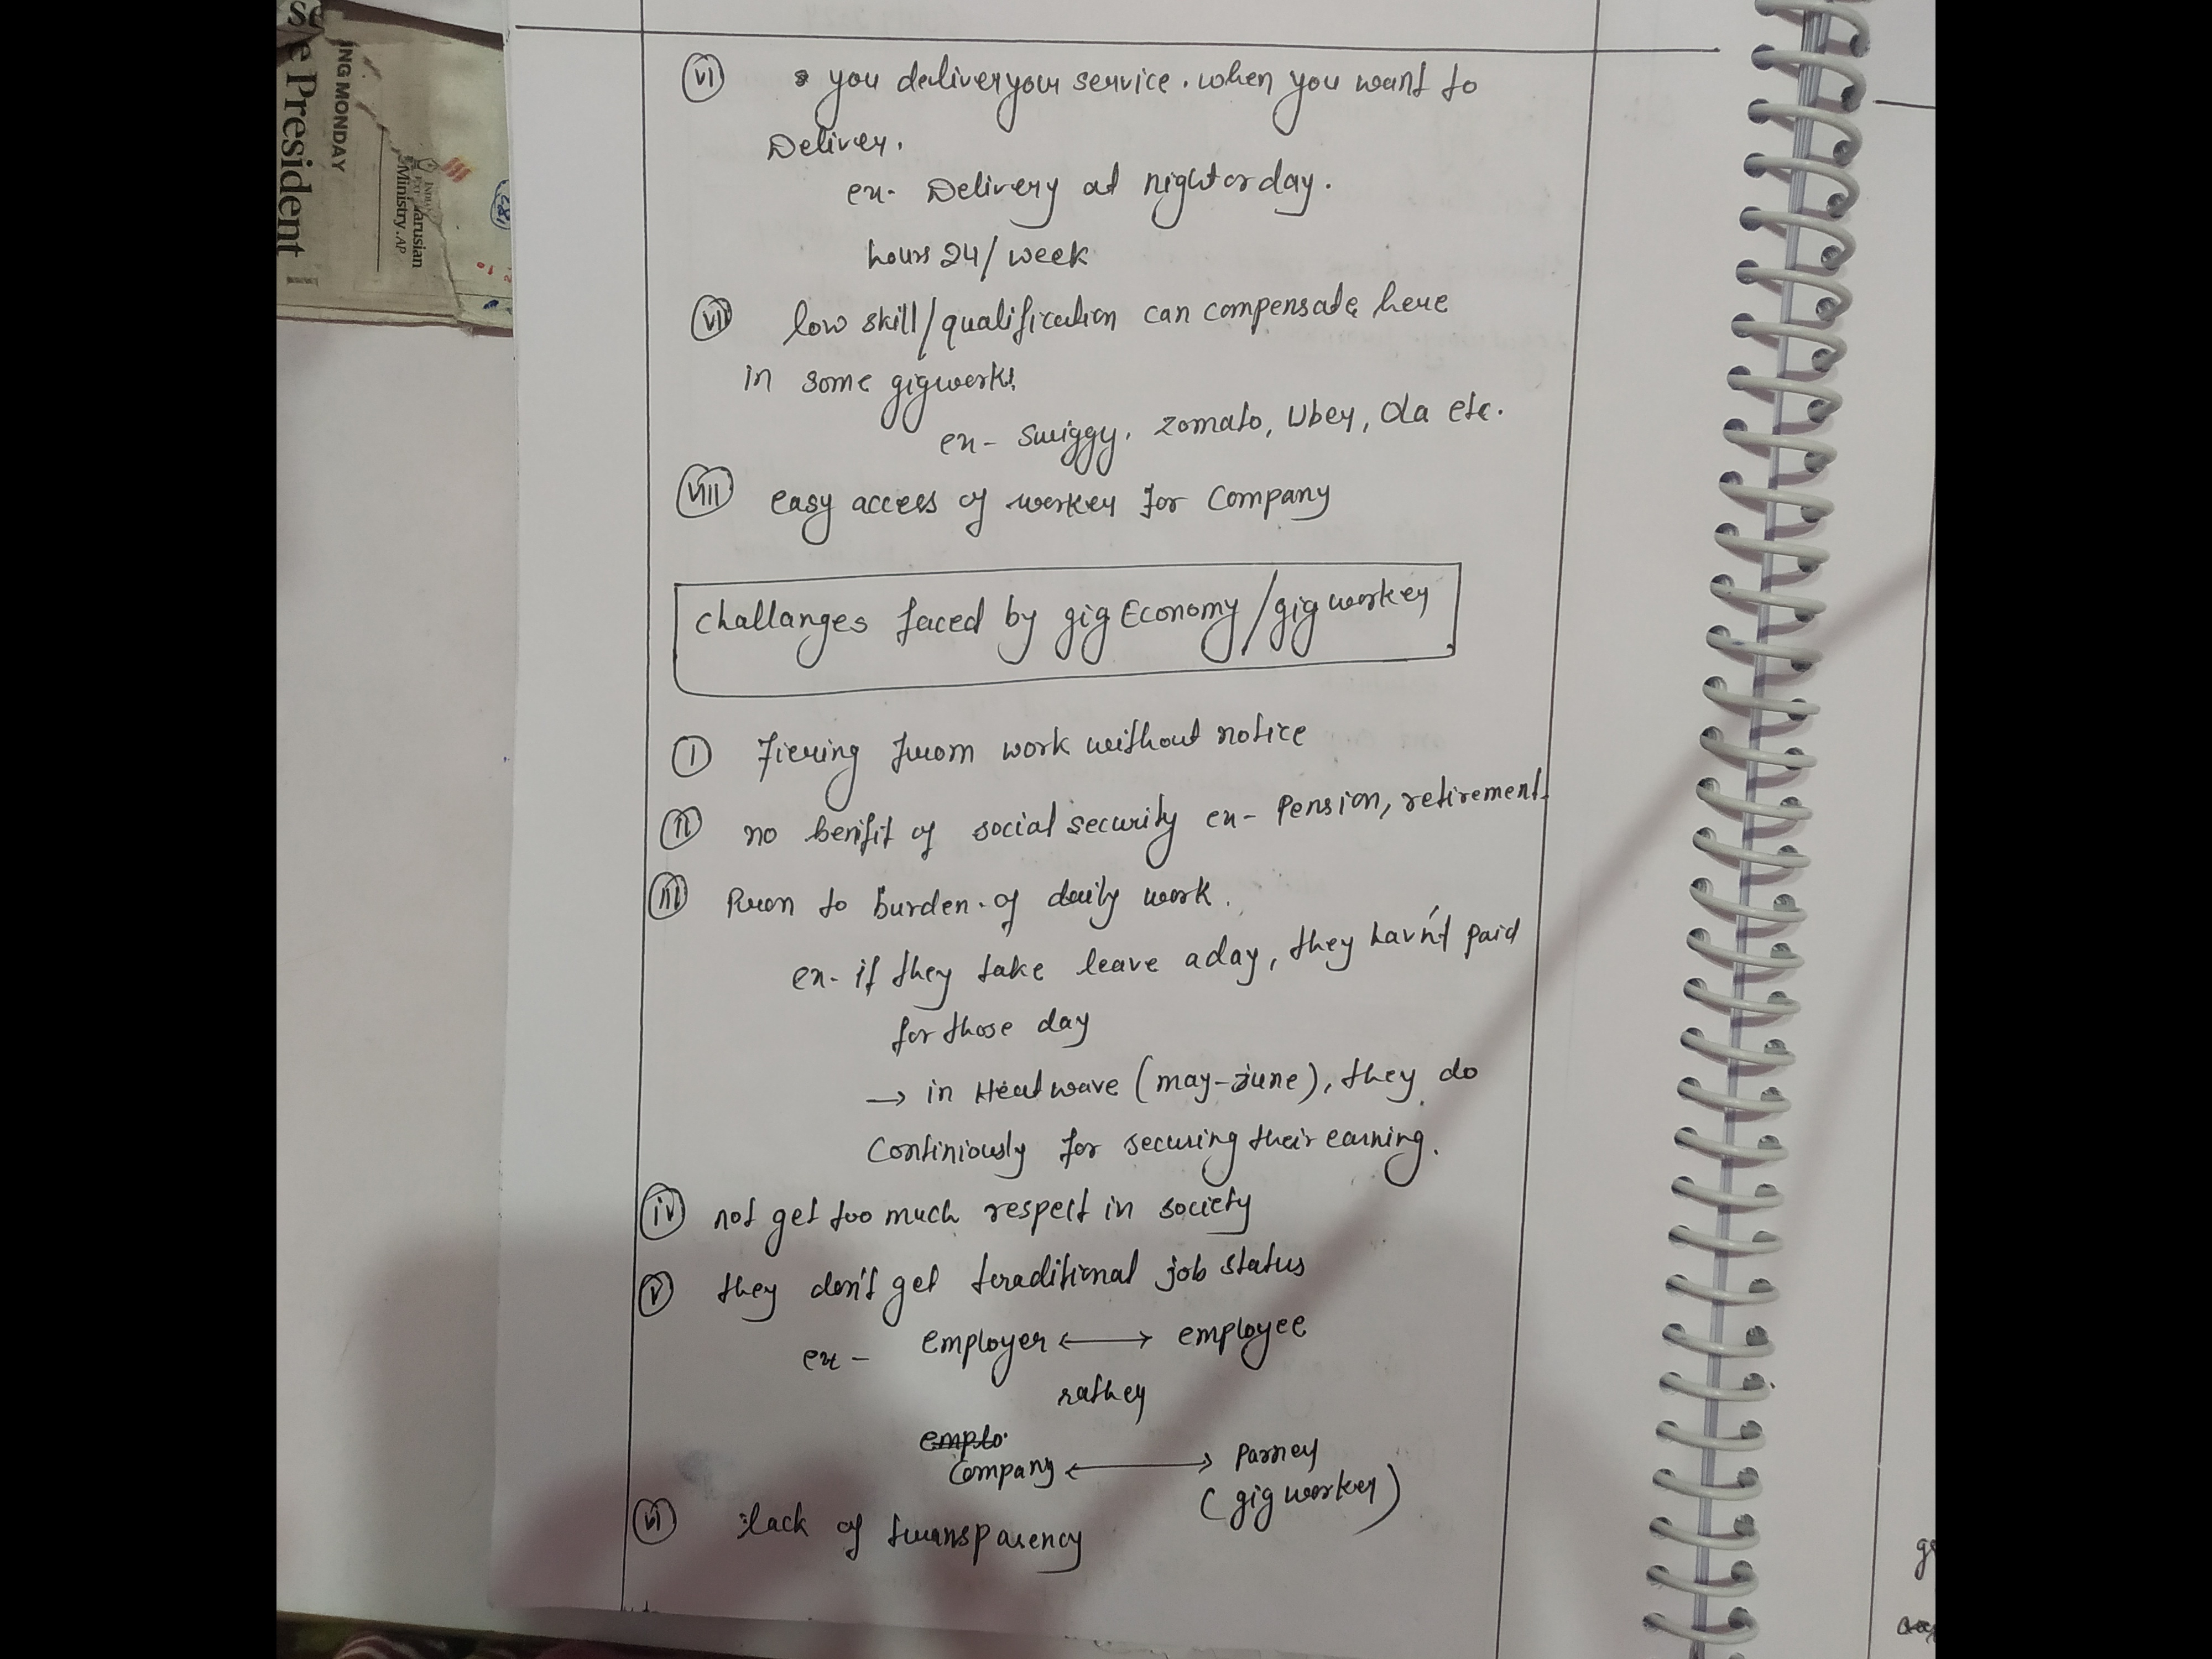 se
e President
ING MONDAY
arusian
Ministry. AP
(vi) you deliver your service. when you want to
Deliver.
ex- Delivery at night or day.
hours 24/week
(vii) low skill/qualification can compensate here
in some gigworks
ex- Swiggy, zomato, Uber, Ola etc.
(viii) easy access of worker for Company
challanges faced by gig Economy/gig worker
(i) Fiering from work without notice
(ii) no benifit of social security ex- Pension, retirement.
(iii) Pron to burden of daily work.
ex- if they take leave a day, they hav'nt paid
for those day
→ in Heat wave (may-June), they do
Continiously for securing their earning.
(iv) not get too much respect in society
(v) they don't get traditional job status
ex - employer ↔ employee
rather
emplo
Company ↔ Parner
(gig worker)
(vi) lack of transparency